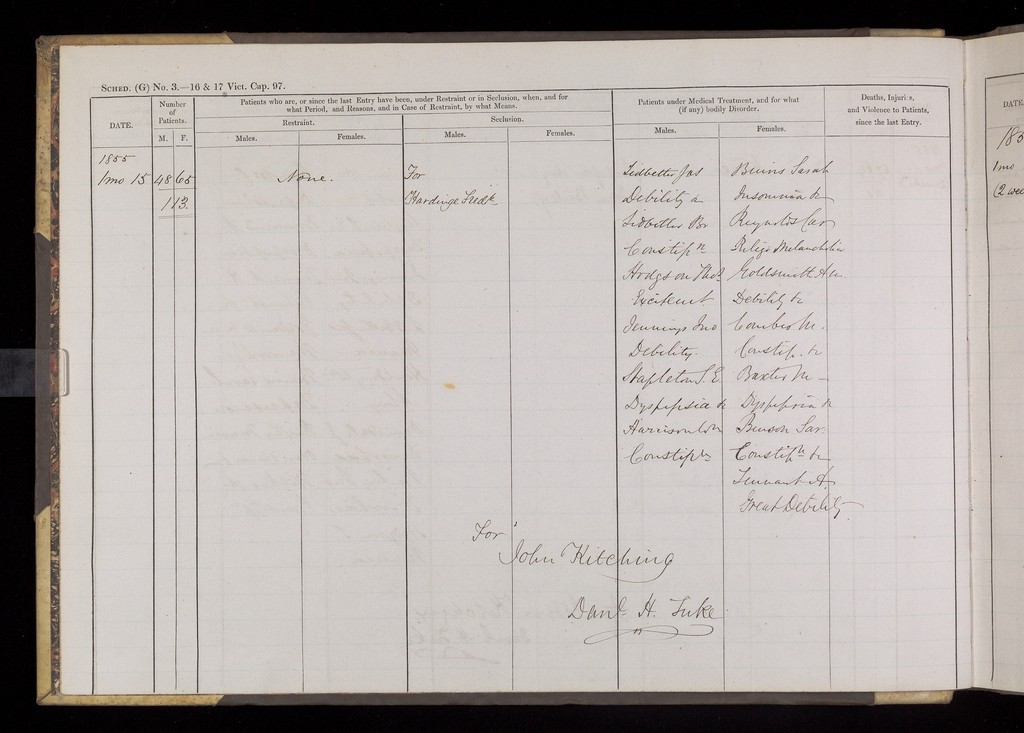 SCHED. (G) No. 3.—16 & 17 Vict. Cap. 97.
DATE.
Number of Patients.
M. F.
Patients who are, or since the last Entry have been, under Restraint or in Seclusion, when, and for
what Period, and Reasons, and in Case of Restraint, by what Means.
Restraint.
Males. Females.
Seclusion.
Males. Females.
Patients under Medical Treatment, and for what
(if any) bodily Disorder.
Males. Females.
Deaths, Injuries,
and Violence to Patients,
since the last Entry.
1855
1 mo 15 48 65
113
None.
For
Hardinge Fredk
Lidbetter Jas
Debility &
Lidbetter Br
Constipn
Hodgson Thos
Excitemt
Jennings Jno
Debility
Stapleton S. E
Dyspepsia &
Harrison
Constipn
Binns Sarah
Insomnia &
Reynolds Car
Religs Melancholia
Goldsmith An
Debility &
Combes M.
Constip. &
Baxter M
Dyspepsia &
Benson Sar.
Constipn &
Tennant A
Great Debility
For
John Kitching
Danl. H. Tuke
DATE
185
1 mo
(2 wee